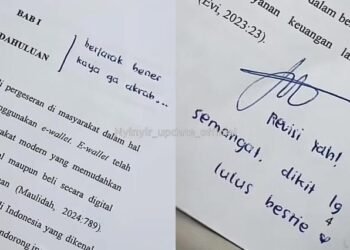 BAB I
DAHULUAN
berjarak bener
kaya ga akrab...
di pergeseran di masyarakat dalam hal
ggunakan e-wallet. E-wallet telah
akat modern yang memudahkan
al maupun beli secara digital
an (Maulidah, 2024:789).
di Indonesia yang dikenal
ndorong in
dalam be
yanan keuangan
(Evi, 2023:23).
la
Revisi yah!
semangat, dikit lg
4
lulus bestie